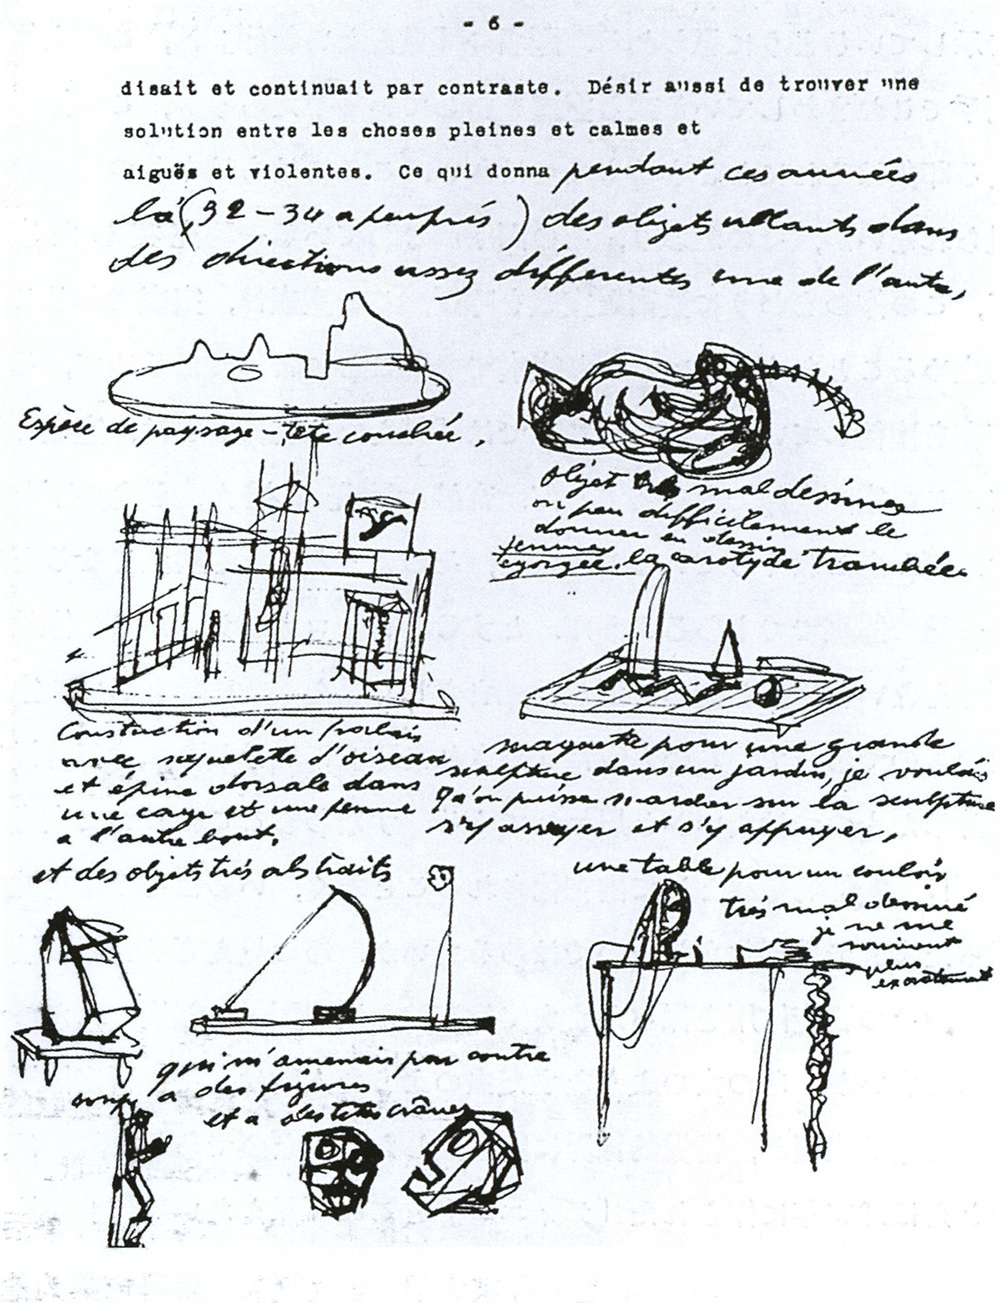 - 6 -
disait et continuait par contraste. Désir aussi de trouver une
solution entre les choses pleines et calmes et
aiguës et violentes. Ce qui donna pendant ces années
là (32-34 a peu prés) des objets allants dans
des directions assez différentes une de l'autre,
Espèce de paysage - tête couchée,
objet mal dessiner
on peu difficilement le
donner en dessin
femme
egorgée, la carotyde tranchée
Construction d'un palais
avec squelette d'oiseau
et épine dorsale dans
une cage et une femme
a l'autre bout.
maquette pour une grande
sculpture dans un jardin, je voulais
qu'on puisse marcher sur la sculpture
s'y assoyer et s'y appuyer,
et des objets très abstraits
une table pour un couloir
très mal dessiné
je ne me
souvient
plus
exactement
qui m'amenais par contre
coup a des figures
et a des tetes crânes